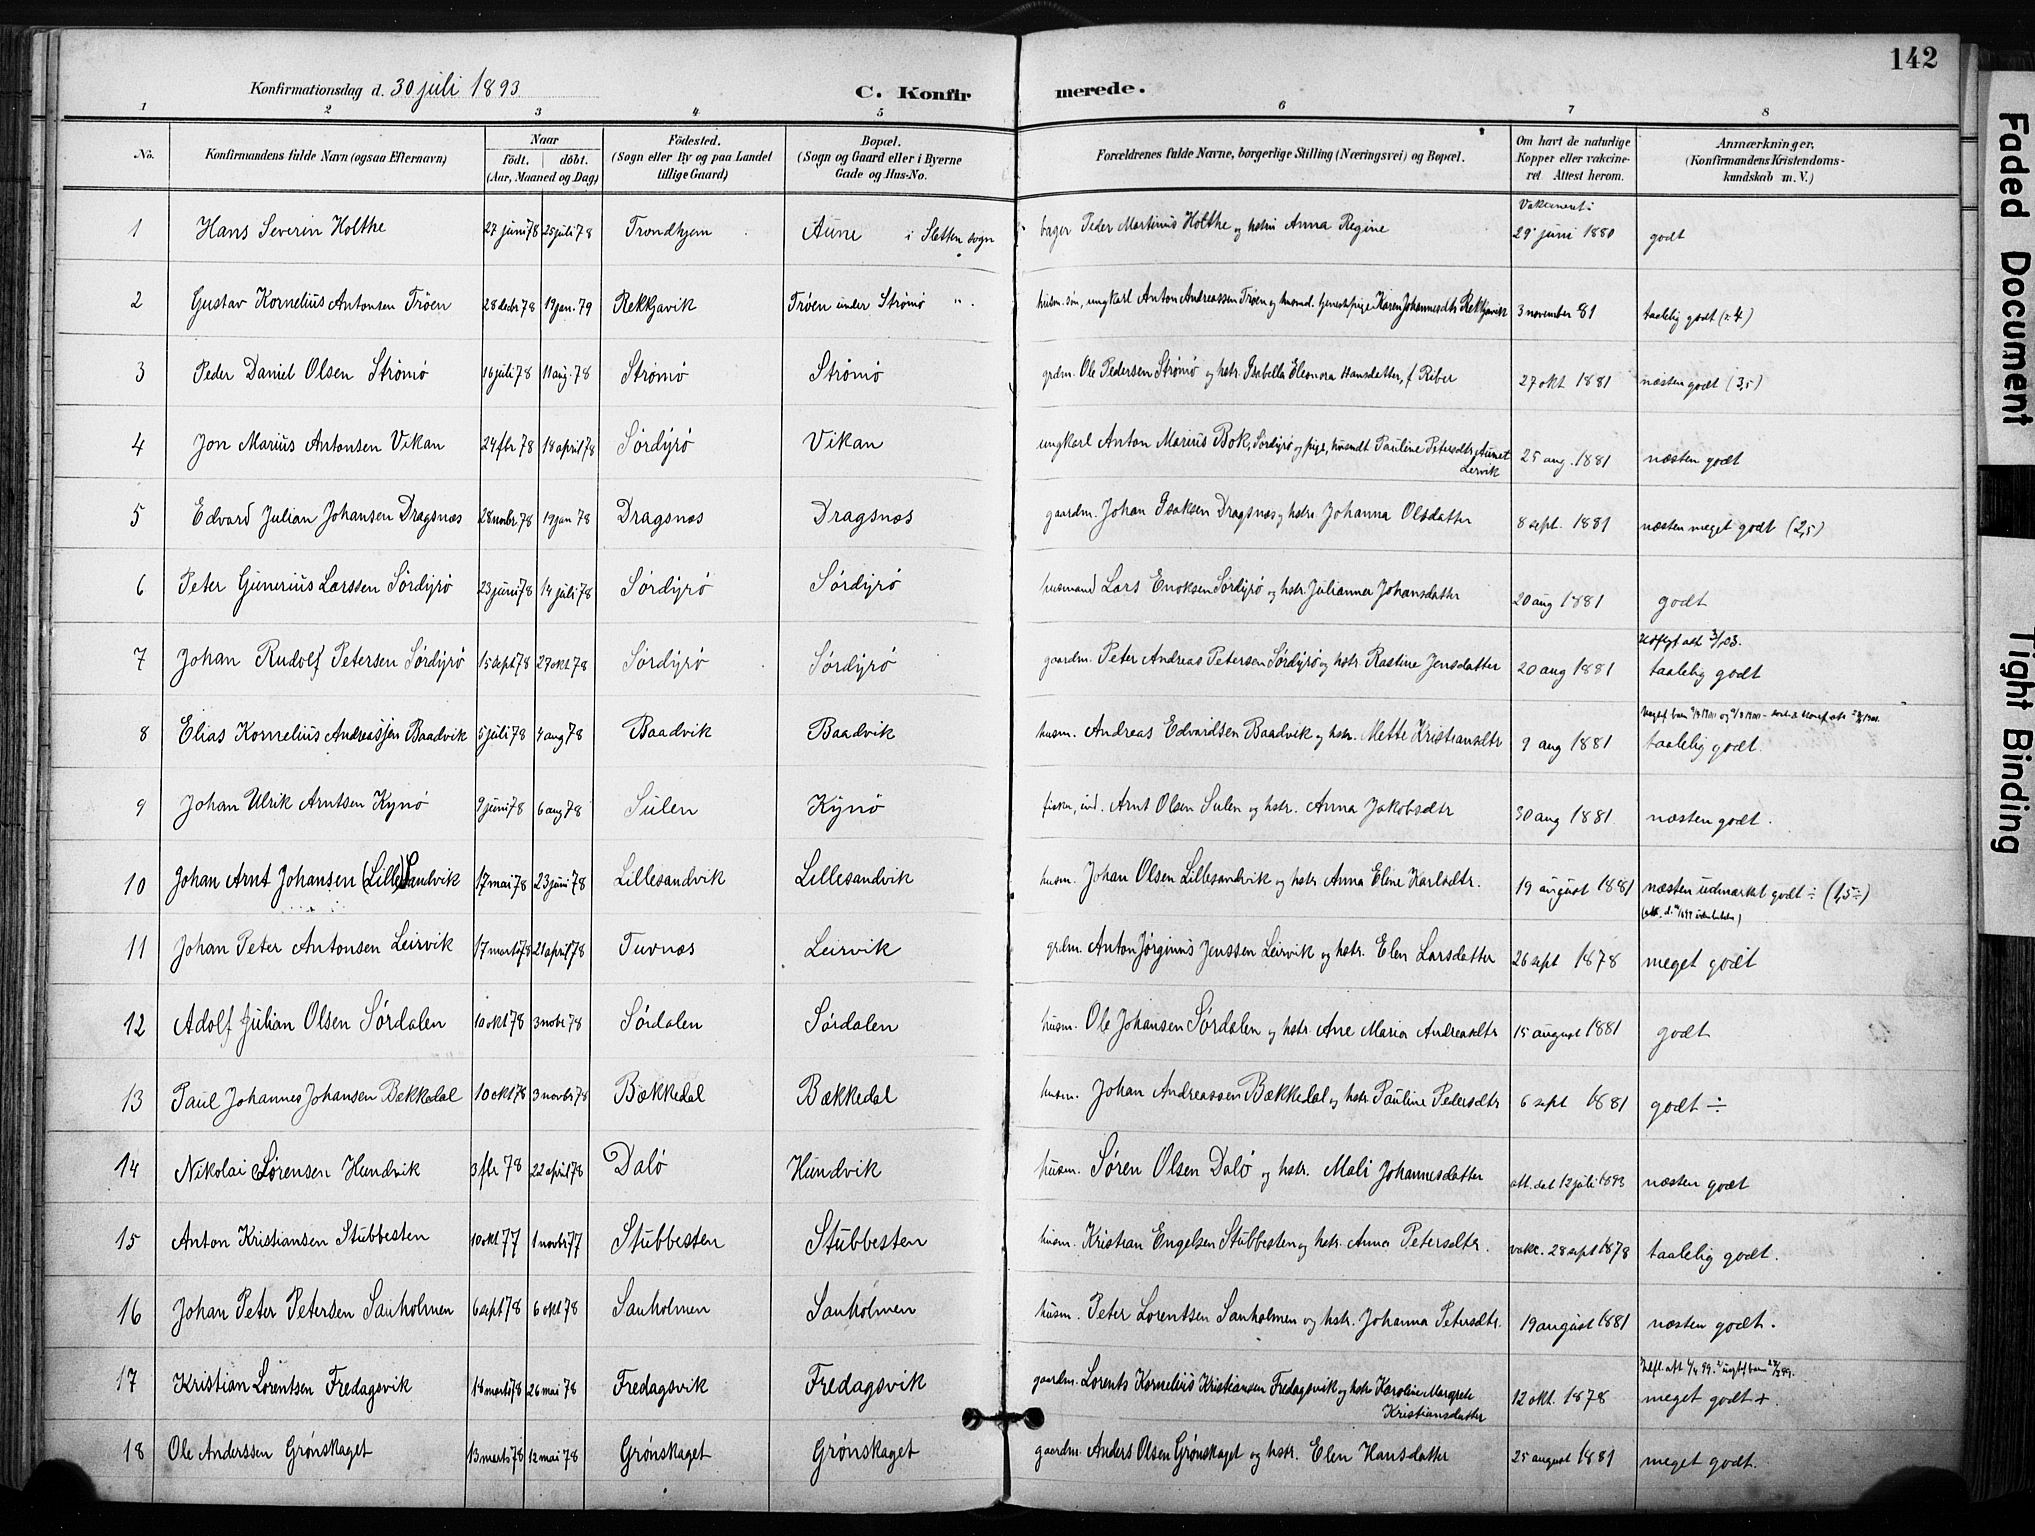 142
Konfirmationsdag d. 30 juli 1893
C. Konfir merede.
1 2 3 4 5 6 7 8
No. Konfirmandens fulde Navn (ogsaa Efternavn) Naar födt. döbt. (Aar, Maaned og Dag) Födested. (Sogn eller By og paa Landet tillige Gaard) Bopæl. (Sogn og Gaard eller i Byerne Gade og Hus-No. Forældrenes fulde Navne, borgerlige Stilling (Næringsvei) og Bopæl. Om havt de naturlige Kopper eller vakcineret Attest herom. Anmærkninger, (Konfirmandens Kristendomskundskab m. V.)
1 Hans Severin Holthe 27 juni 78 25 juli 78 Trondhjem Aune i Sletten sogn bager Peder Martinus Holthe og hstru Anna Regine Vakcineret: 29 juni 1880 godt
2 Gustav Kornelius Antonsen Tröen 28 decbr 78 19 jan. 79 Rekkjavik Tröen under Strömö husm. sön, ungkarl Anton Andreassen Tröen og Karen Johannesdtr Rekkjavik 3 november 81 taalelig godt (÷ 4)
3 Peder Daniel Olsen Strömö 16 juli 78 11 aug. 78 Strömö Strömö grdm. Ole Pedersen Strömö og hstr. Isabella Eleonora Hansdatter, f Riber 27 okt 1881 næsten godt (3,5)
4 Jon Marius Antonsen Vikan 24 fbr 78 18 april 78 Sördyrö Vikan ungkarl Anton Marius Bok, Sördyrö og pige, husmdt Pauline Petersdtr Aunet Lervik 25 aug. 1881 næsten godt
5 Edvard Julian Johansen Dragsnæs 28 novbr 78 19 jan 78 Dragsnæs Dragsnæs gaardm. Johan Isaksen Dragsnæs og hstru. Johanna Olsdatter 8 sept. 1881 næsten meget godt (2,5)
6 Peter Gunerius Larssen Sördyrö 23 juni 78 14 juli 78 Sördyrö Sördyrö husmand Lars Enoksen Sördyrö og hstr. Julianna Johansdatter 20 aug 1881 godt
7 Johan Rudolf Petersen Sördyrö 15 sept 78 27 okt 78 Sördyrö Sördyrö gaardm. Peter Andreas Petersen Sördyrö og hstr. Rastine Jensdatter 20 aug 1881 taalelig godt
8 Elias Kornelius Andreassen Baadvik 5 juli 78 4 aug 78 Baadvik Baadvik husm. Andreas Edvardsen Baadvik og hstr. Mette Kristiansdtr 9 aug 1881 taalelig godt.
9 Johan Ulrik Arntsen Kynö 9 juni 78 6 aug 78 Sulen Kynö fisker, ind. Arnt Olsen Sulen og hstr. Anna Jakobsdtr 30 aug 1881 næsten godt.
10 Johan Arnt Johansen (Lille)Sandvik 17 mai 78 23 juni 78 Lillesandvik Lillesandvik husm. Johan Olsen Lillesandvik og hstr Anna Eline Karlsdtr. 19 august 1881 næsten udmærket godt ÷ (1,5÷)
11 Johan Peter Antonsen Leirvik 17 marts 78 21 april 78 Tuvnæs Leirvik grdm. Anton Jörginus Jenssen Leirvik og hstr. Elen Larsdatter 26 sept 1878 meget godt
12 Adolf Julian Olsen Sördalen 10 okt 78 3 nobr 78 Sördalen Sördalen husm. Ole Johansen Sördalen og hstr Ane Maria Andreasdtr 15 august 1881 godt
13 Paul Johannes Johansen Bekkedal 10 okt 78 3 novbr 78 Bækkedal Bækkedal husm. Johan Andreassen Bækkedal og hstr. Pauline Pedersdtr 6 sept 1881 godt ÷
14 Nikolai Sörensen Hundvik 3 fbr 78 22 april 78 Dalö Hundvik husm. Sören Olsen Dalö og hstr. Mali Johannesdatter att. dat 12 juli 1893 næsten godt
15 Anton Kristiansen Stubbesten 10 okt 77 1 novbr 77 Stubbesten Stubbesten husm. Kristian Engelsen Stubbesten og hstr. Anna Petersdtr. vakc. 28 sept 1878 taalelig godt.
16 Johan Peter Petersen Sauholmen 6 sept 78 6 okt 78 Sauholmen Sauholmen husm. Peter Lorentsen Sauholmen og hstr. Johanna Petersdtr. 19 august 1881 næsten godt.
17 Kristian Lorentsen Fredagsvik 18 marts 78 26 mai 78 Fredagsvik Fredagsvik gaardm. Lorents Kornelius Kristiansen Fredagsvik og hstr Karoline Margrete Kristiansdatter 12 okt. 1878 meget godt +
18 Ole Anderssen Grönskaget 13 marts 78 12 mai 78 Grönskaget Grönskaget gaardm. Anders Olsen Grönskaget og hstr. Elen Hansdatter 25 august 1881 meget godt.
Faded Document
Tight Binding